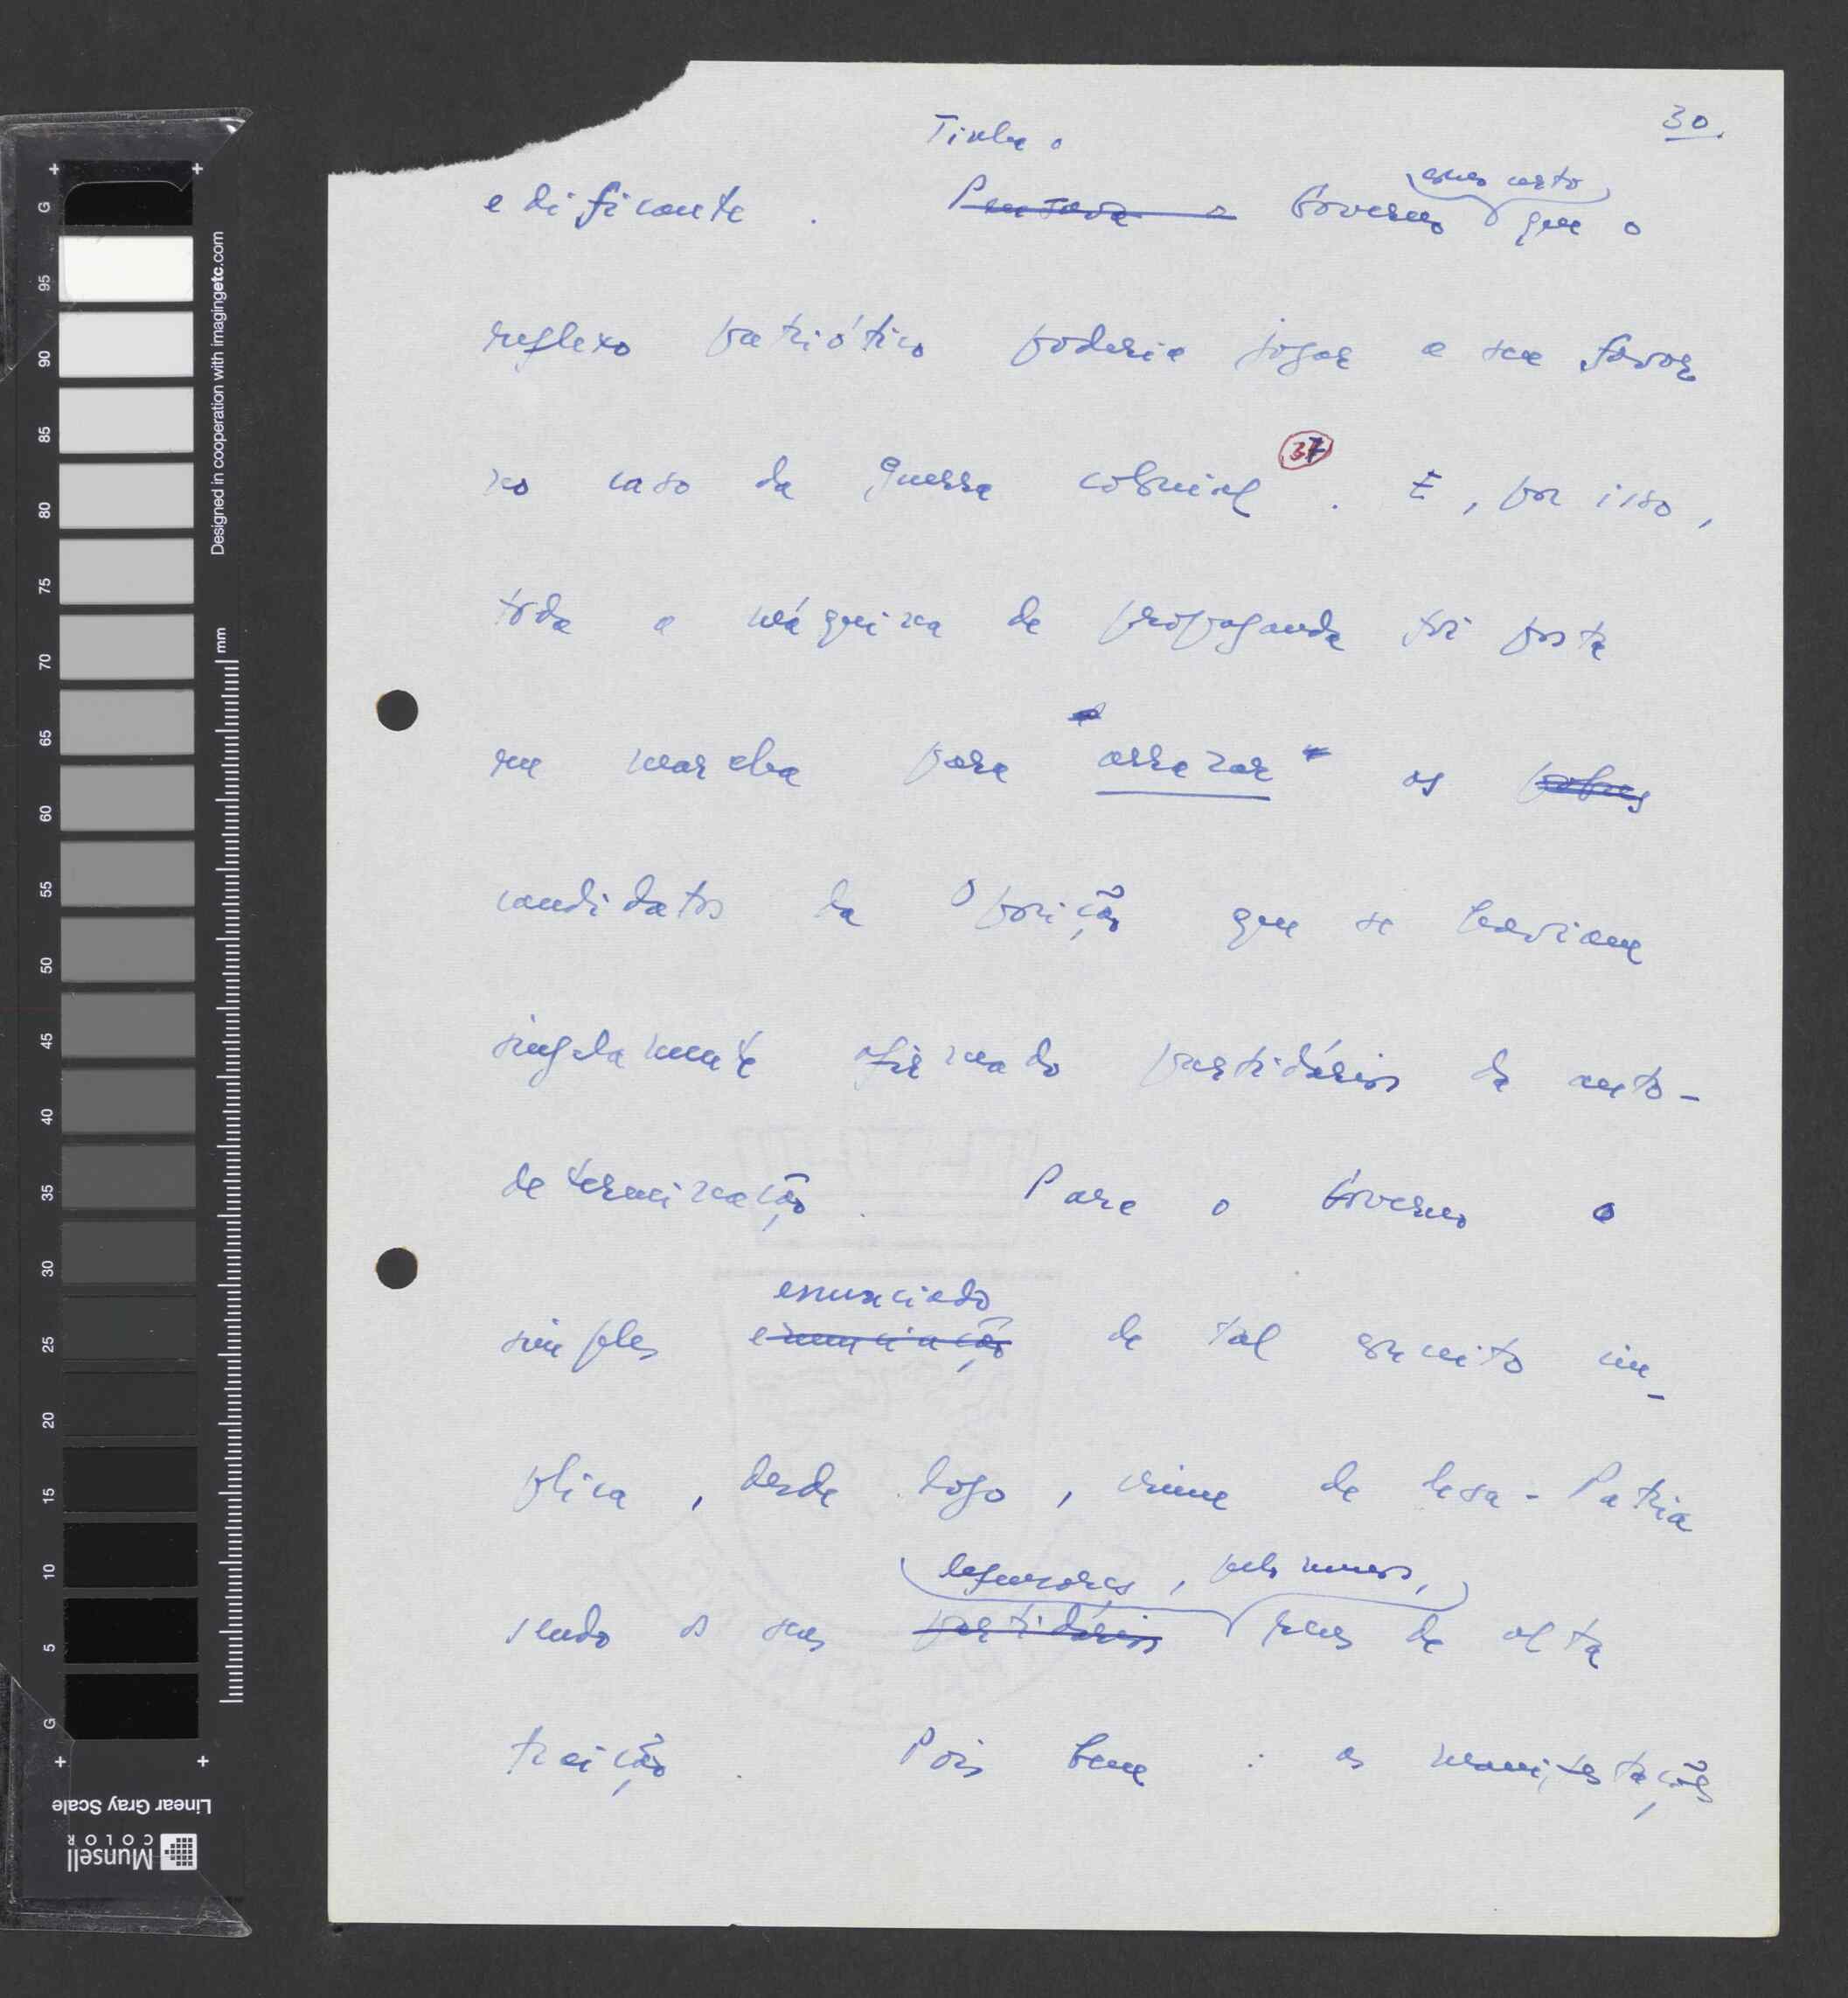 30.
Tinha o
como certo
edificante . ~~Pensava o~~ Governo que o
reflexo patriótico poderia jogar a seu favor
no caso da guerra colonial 37 . E, por isso,
toda a máquina de propaganda foi posta
em marcha para arrazar os ~~pobres~~
candidatos da Oposição que se haviam
singelamente afirmado partidários da auto-
determinação . Para o Governo o
enunciado
simples ~~enunciação~~ de tal conceito im-
plica , desde logo , crime de lesa-Patria
defensores , pelo menos,
sendo os seus ~~partidários~~ reus de alta
traição . Pois bem : as manifestações
G 95 90 85 80 75 70 65 60 55 50 45 40 35 30 25 20 15 10 5 G
Designed in cooperation with imagingetc.com
mm
Linear Gray Scale
Munsell
COLOR